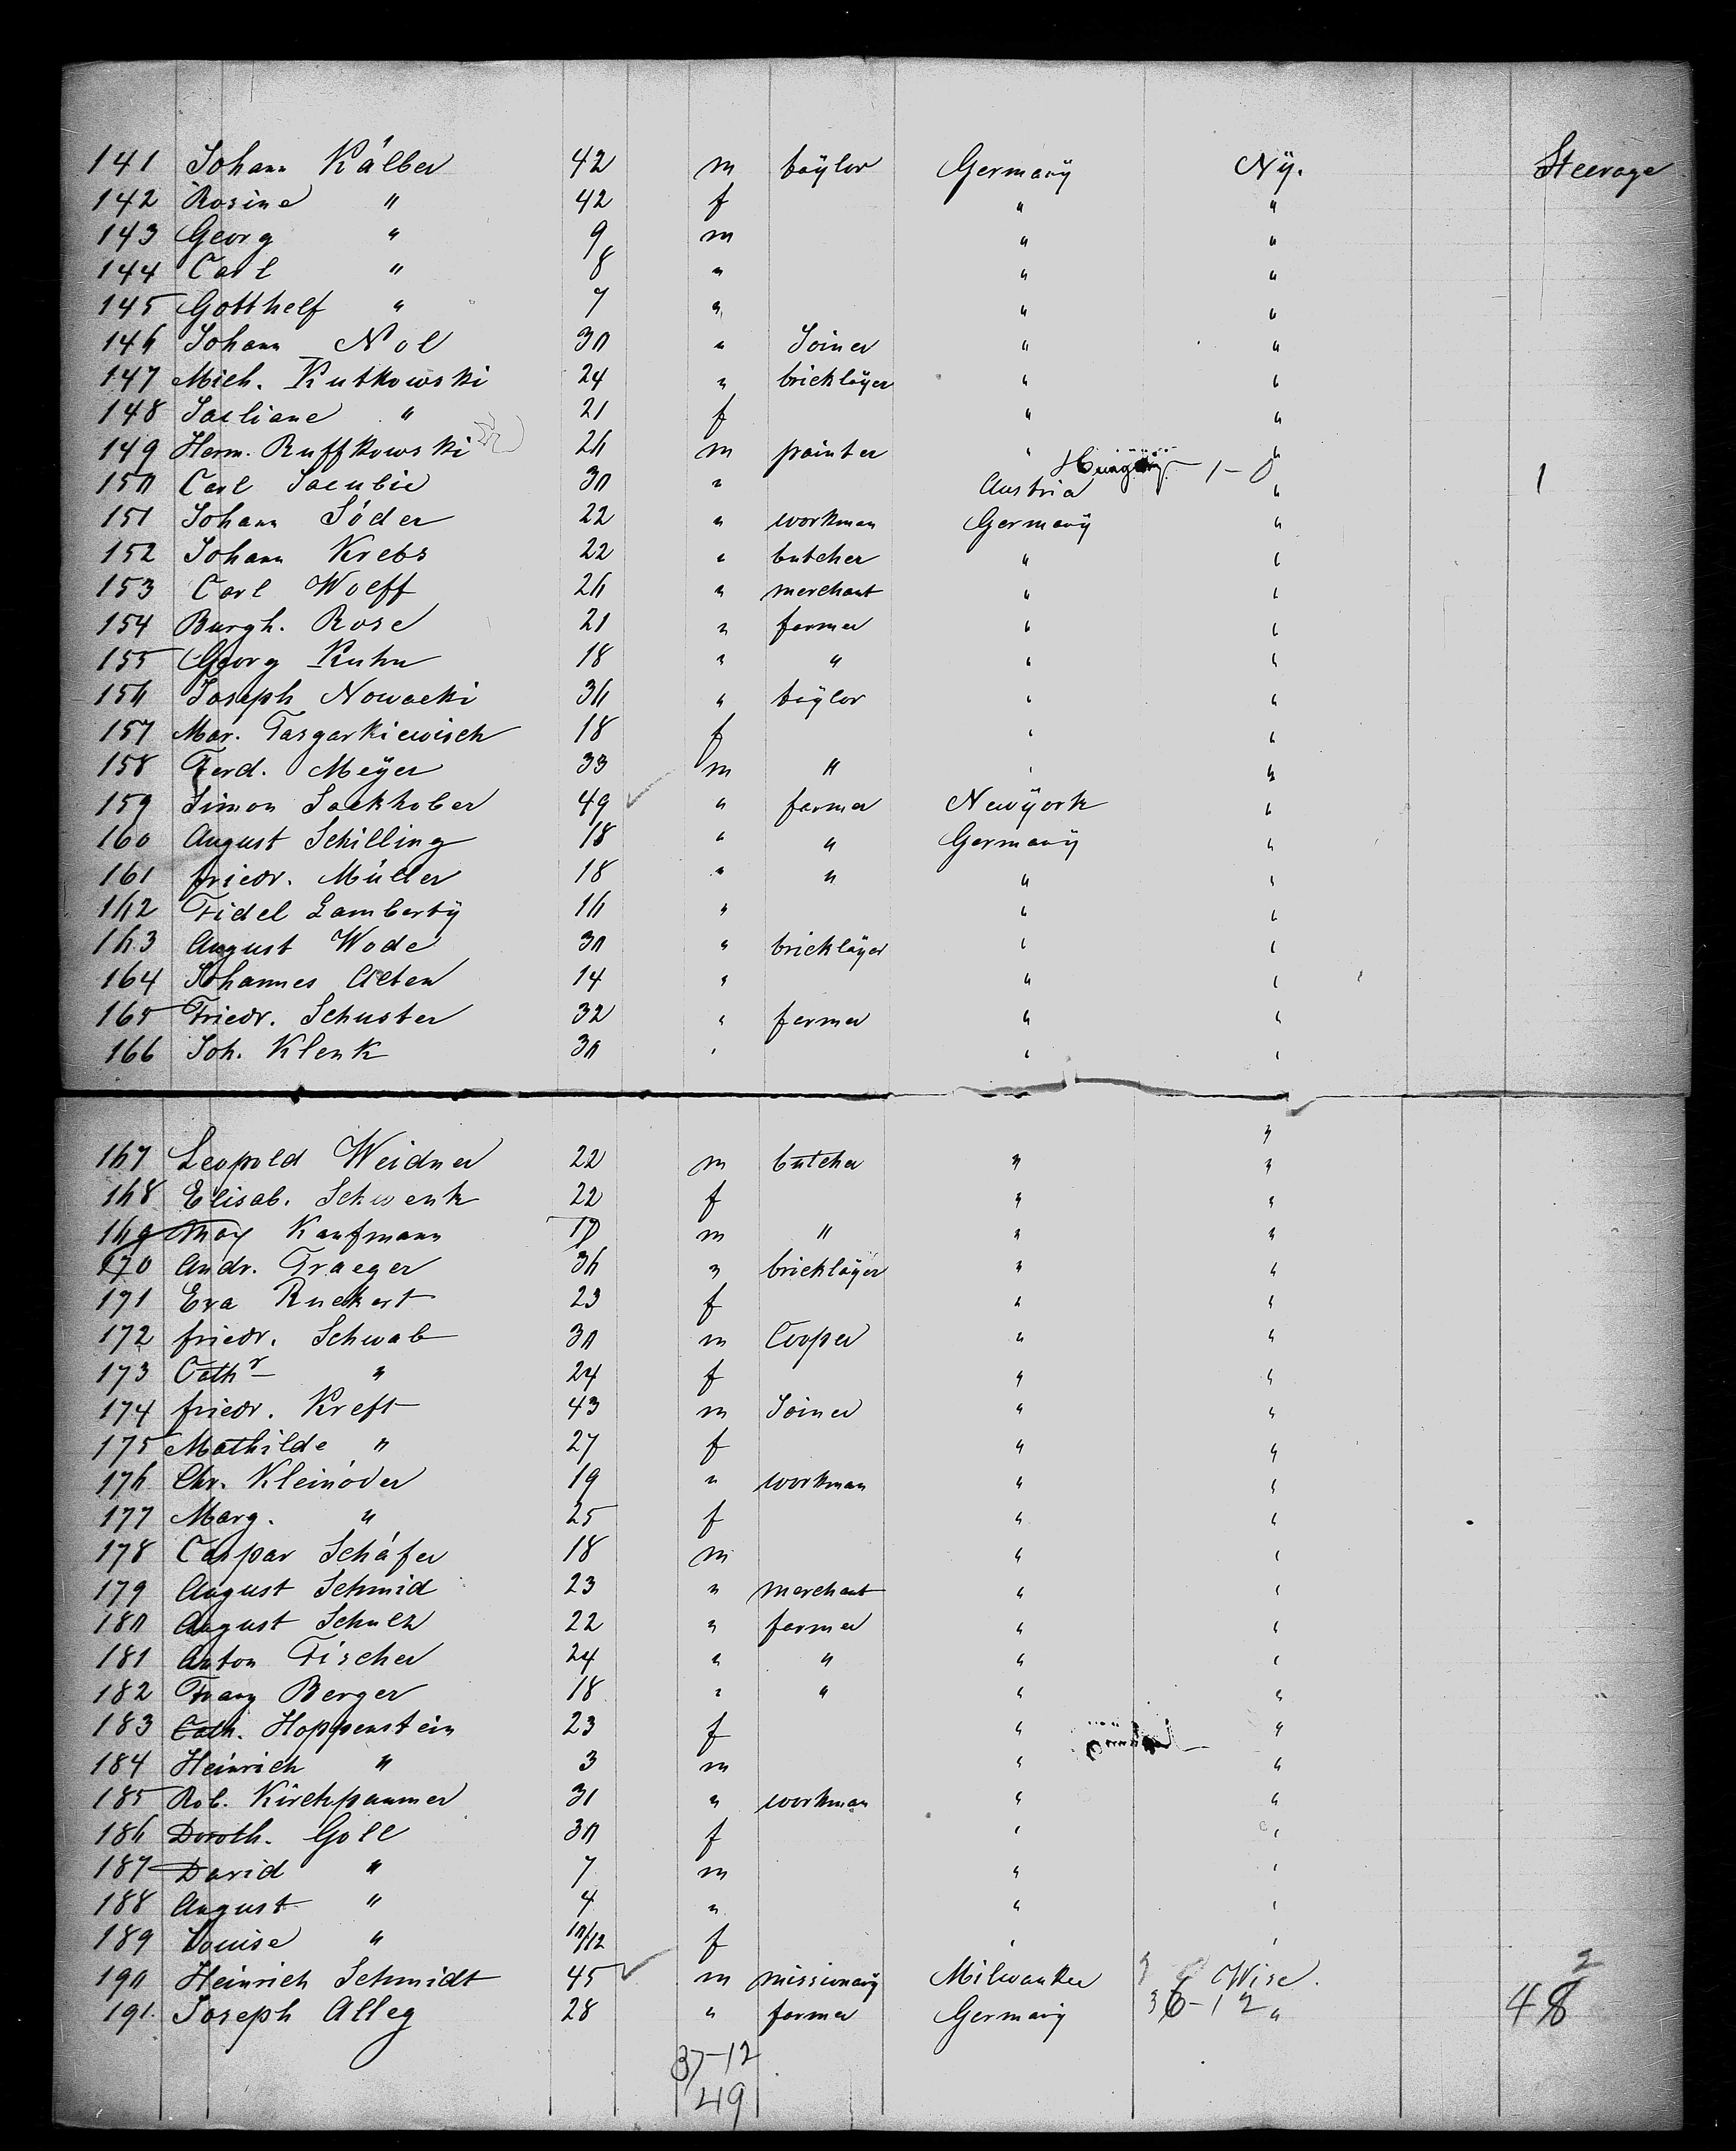 141 Johann Kälber 42 m taylor Germany Ny. Steerage
142 Rosine " 42 f " "
143 Georg " 9 m " "
144 Carl " 8 " " "
145 Gotthelf " 7 " " "
146 Johann Nol 30 " Joiner " "
147 Mich. Kutkowski 24 " bricklayer " "
148 Juliane " 21 f " "
149 Herm. Ruffkowski 26 m painter " "
150 Carl Jacubie 30 " Austria Hungary 1-0 " 1
151 Johann Söder 22 " workman Germany "
152 Johann Krebs 22 " butcher " "
153 Carl Wolff 26 " merchant " "
154 Burgh. Rose 21 " farmer " "
155 Georg Kuhn 18 " " " "
156 Joseph Nowacki 36 " taylor " "
157 Mar. Tasgarkiewisch 18 f " "
158 Ferd. Meyer 33 m " " "
159 Simon Sackhober 49 " farmer Newyork "
160 August Schilling 18 " " Germany "
161 friedr. Müller 18 " " " "
162 Fidel Lamberty 16 " " "
163 August Wode 30 " bricklayer " "
164 Johannes Alten 14 " " "
165 Friedr. Schuster 32 " farmer " "
166 Joh. Klenk 30 " " "
"
167 Leopold Weidner 22 m butcher " "
168 Elisab. Schwenk 22 f " "
169 Max Kaufmann m " " "
170 Andr. Traeger 36 " bricklayer " "
171 Eva Ruckert 23 f " "
172 friedr. Schwab 30 m Cooper " "
173 Cathr " 24 f " "
174 friedr. Kreft 43 m Joiner " "
175 Mathilde " 27 f " "
176 Chr. Kleinöder 19 " workman " "
177 Marg. " 25 f " "
178 Caspar Schäfer 18 m " "
179 August Schmid 23 " merchant " "
180 August Schulz 22 " farmer " "
181 Anton Fischer 24 " " " "
182 Franz Berger 18 " " " "
183 Cath. Hoppenstein 23 f " "
184 Heinrich " 3 m " "
185 Rob. Kirchpaumer 31 " workman " "
186 Doroth. Goll 30 f " "
187 David " 7 m " "
188 August " 4 " " "
189 Louise " 10/12 f " "
190 Heinrich Schmidt 45 m missionary Milwaukee Wisc. 2
191 Joseph Alleg 28 " farmer Germany 36-12 " 48
37-12
49